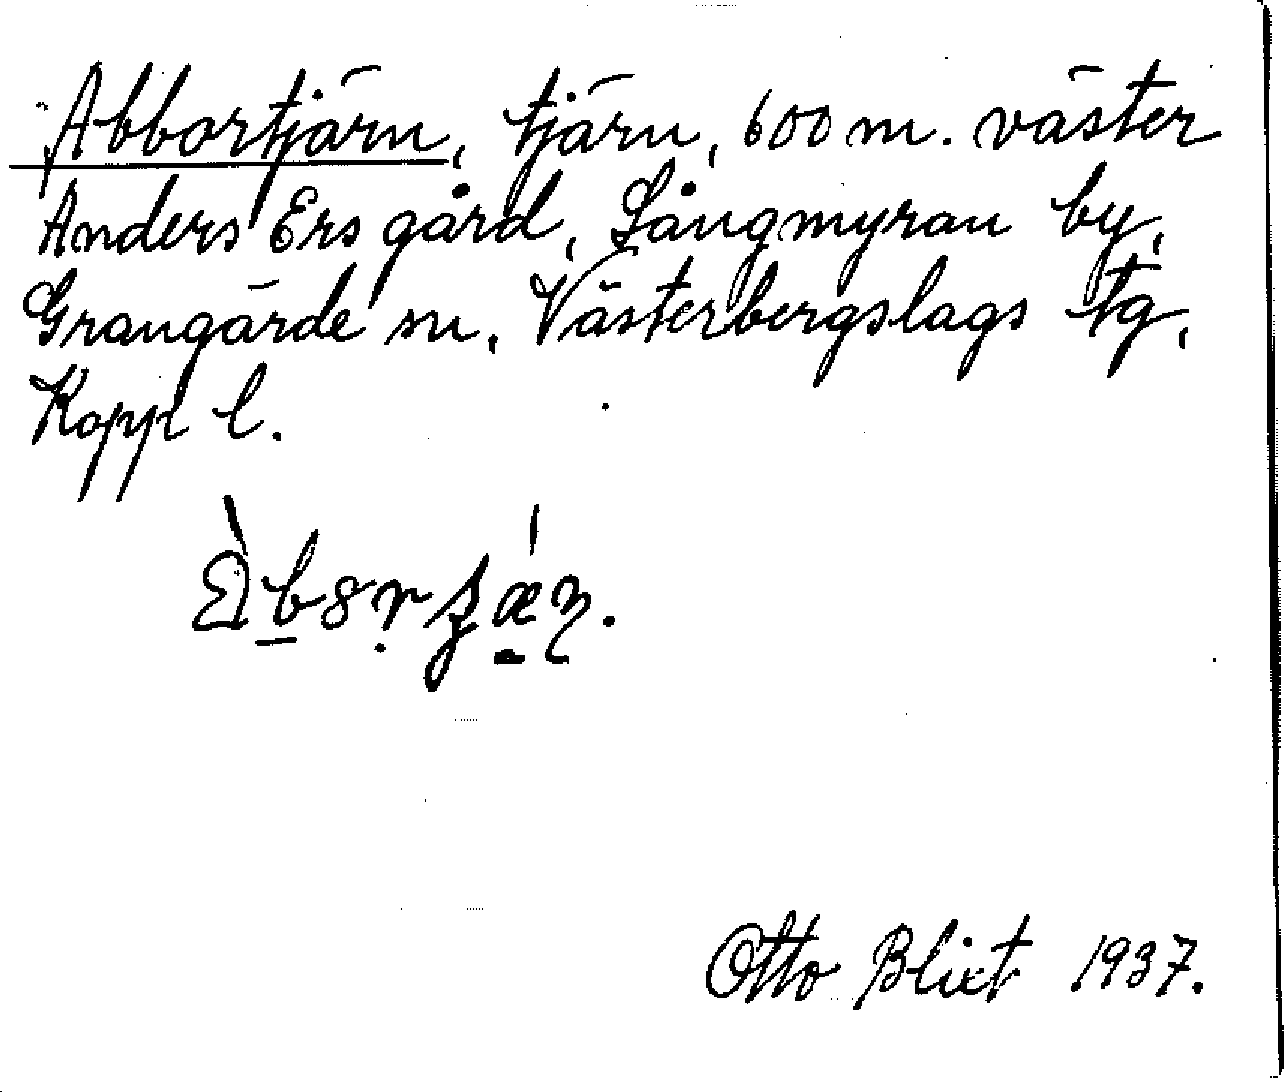 Abbortjärn, tjärn, 600 m. väster
Anders Ers gård, Långmyran by,
Grangärde sn, Västerbergslags tg,
Kopp l.
Otto Blixt 1937.